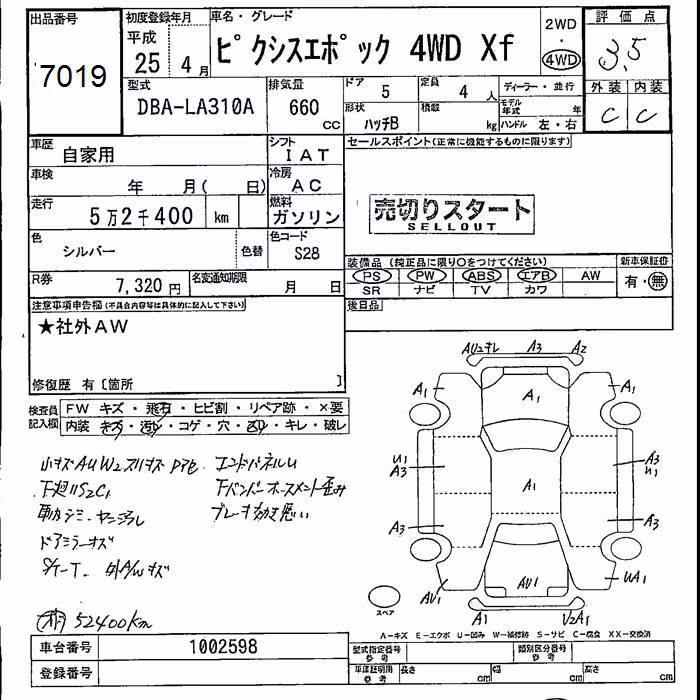 出品番号
7019
初度登録年月
平成
25 4月
車名・グレード
ピクシスエポック 4WD Xf
2WD
・
4WD
評価点
3,5
外装 内装
C C
型式
DBA-LA310A
排気量
660
CC
ドア 5
定員 4 人
形状 ハッチB
積載 kg
ディーラー・並行
モデル年式 年
ハンドル 左・右
車歴 自家用
シフト IAT
車検 年 月( 日)
冷房 AC
走行 5万2千400 km
燃料 ガソリン
色 シルバー
色替
色コード S28
R券 7,320円
名変通知期限 月 日
セールスポイント(正常に機能するものに限ります)
売切りスタート
SELLOUT
装備品 (純正品に限り○をつけてください)
PS PW ABS エアB AW
SR ナビ TV カワ
新車保証書
有・無
後日品
注意事項申告欄(不具合内容等は具体的に記入して下さい)
★社外AW
修復歴 有〔箇所 〕
検査員記入欄
FW キズ・飛石・ヒビ割・リペア跡・×要
内装 キズ・汚レ・コゲ・穴・凹・キレ・破レ
エンドパネルU
ドアミラーキズ
52400km
AU2キレ A3 A2
A1 A1 A1
U1 A3
A1
A3 U1
A3 A3
AU1 AU1 WA1
A1 U2A1
スペア
A-キズ E-エクボ U-凹み W-補修跡 S-サビ C-腐食 XX-交換済
車台番号 1002598
登録番号
型式指定番号 参考
類別区分番号 参考
車庫証明用 参考
長さ cm
幅 cm
高さ cm